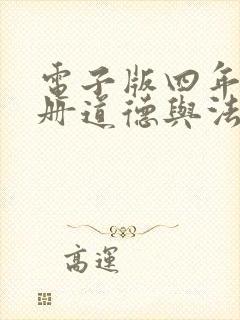 電子版四年
册道德與法
高運